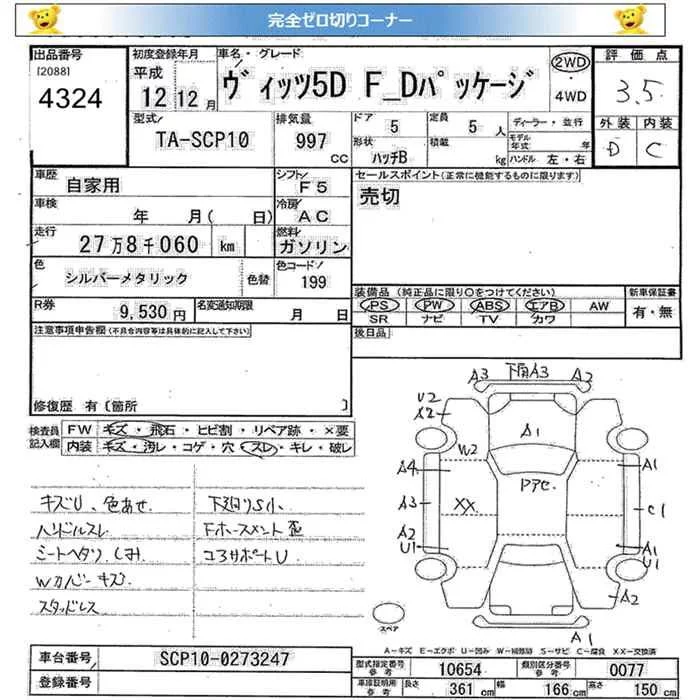 完全ゼロ切りコーナー
出品番号
[2088]
4324
初度登録年月
平成
12年12月
車名・グレード
ヴィッツ5D F_Dパッケージ
2WD
4WD
評価点
3.5
型式/
TA-SCP10
排気量
997
CC
ドア
5
定員
5人
ディーラー・並行
形状
ハッチB
積載
kg
モデル年式 年
ハンドル 左・右
外装 内装
D C
車歴
自家用
シフト/
F5
セールスポイント(正常に機能するものに限ります)
売切
車検
年 月( 日)
冷房/
AC
走行
27万8千060 km
燃料/
ガソリン
色
シルバーメタリック
色替
色コード/
199
装備品(純正品に限り○をつけてください)
PS PW ABS エアB AW
SR ナビ TV カワ
新車保証書
有・無
R券
9,530円
名変通知期限
月 日
後日品
注意事項申告欄(不具合内容等は具体的に記入して下さい)
修復歴 有〔箇所 〕
検査員記入欄
FW キズ・飛石・ヒビ割・リペア跡・×要
内装 キズ・汚レ・コゲ・穴・スレ・キレ・破レ
キズU、色あせ
ハンドルスレ
シートヘタリ、しみ
Wカバーキズ
スタッドレス
下廻りS小
Fホースメント歪
コアサポートU
A3 下角A3 A2
U2
A2
A1
W2
A4
A1
ドアセ
A3
XX
C1
A2
U1
A1
U1
A2
スペア
A1
A-キズ E-エクボ U-凹み W-補修跡 S-サビ C-腐食 XX-交換済
車台番号
SCP10-0273247
登録番号
型式指定番号
参考
10654
類別区分番号
参考
0077
車庫証明用
参考
長さ
361 cm
幅
166 cm
高さ
150 cm